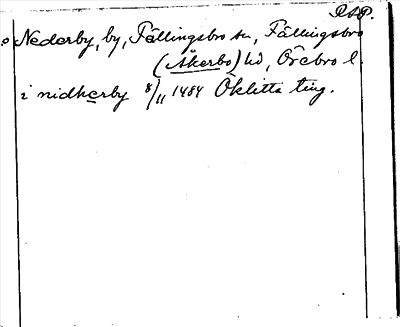 RAP.
Nederby, by, Fellingsbro sn, Fellingsbro
(Åkerbo) hd, Örebro l.
i nidherby 8/11 1484 Öklitta ting.